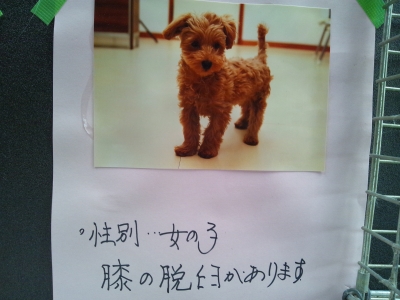 °性別‥女の子
膝の脱臼があります